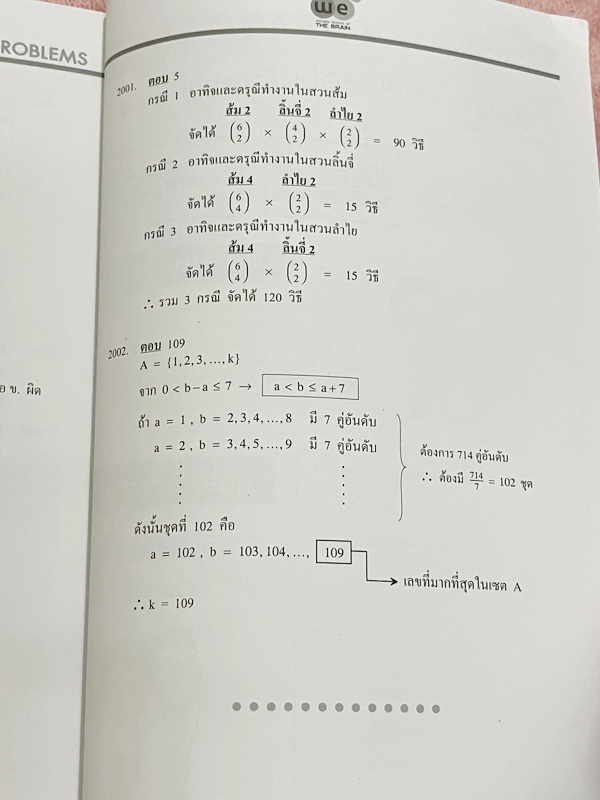 ROBLEMS
we
THE BRAIN
2001. ตอบ 5
กรณี 1 อาทิจและดรุณีทำงานในสวนส้ม
ส้ม 2 ลิ้นจี่ 2 ลำไย 2
จัดได้ (6 2) × (4 2) × (2 2) = 90 วิธี
กรณี 2 อาทิจและดรุณีทำงานในสวนลิ้นจี่
ส้ม 4 ลำไย 2
จัดได้ (6 4) × (2 2) = 15 วิธี
กรณี 3 อาทิจและดรุณีทำงานในสวนลำไย
ส้ม 4 ลิ้นจี่ 2
จัดได้ (6 4) × (2 2) = 15 วิธี
∴ รวม 3 กรณี จัดได้ 120 วิธี
2002. ตอบ 109
A = {1, 2, 3, ..., k}
อ ข. ผิด
จาก 0 < b − a ≤ 7 → a < b ≤ a + 7
ถ้า a = 1 , b = 2, 3, 4, ..., 8 มี 7 คู่อันดับ
a = 2 , b = 3, 4, 5, ..., 9 มี 7 คู่อันดับ
ต้องการ 714 คู่อันดับ
∴ ต้องมี 714/7 = 102 ชุด
ดังนั้นชุดที่ 102 คือ
a = 102 , b = 103, 104, ..., 109
เลขที่มากที่สุดในเซต A
∴ k = 109